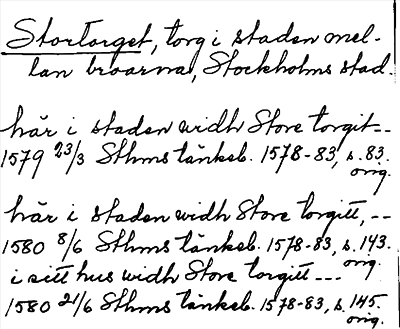 Stortorget, torg i staden mel-
lan broarna, Stockholms stad.
här i staden widh Store torgit--
1579 23/3 Sthms tänkeb. 1578-83, s. 83.
orig.
här i staden widh Store torgitt, --
1580 8/6 Sthms tänkeb. 1578-83, s. 143.
orig.
i sitt hus widh Store torgitt ---
1580 21/6 Sthms tänkeb. 1578-83, s. 145.
orig.